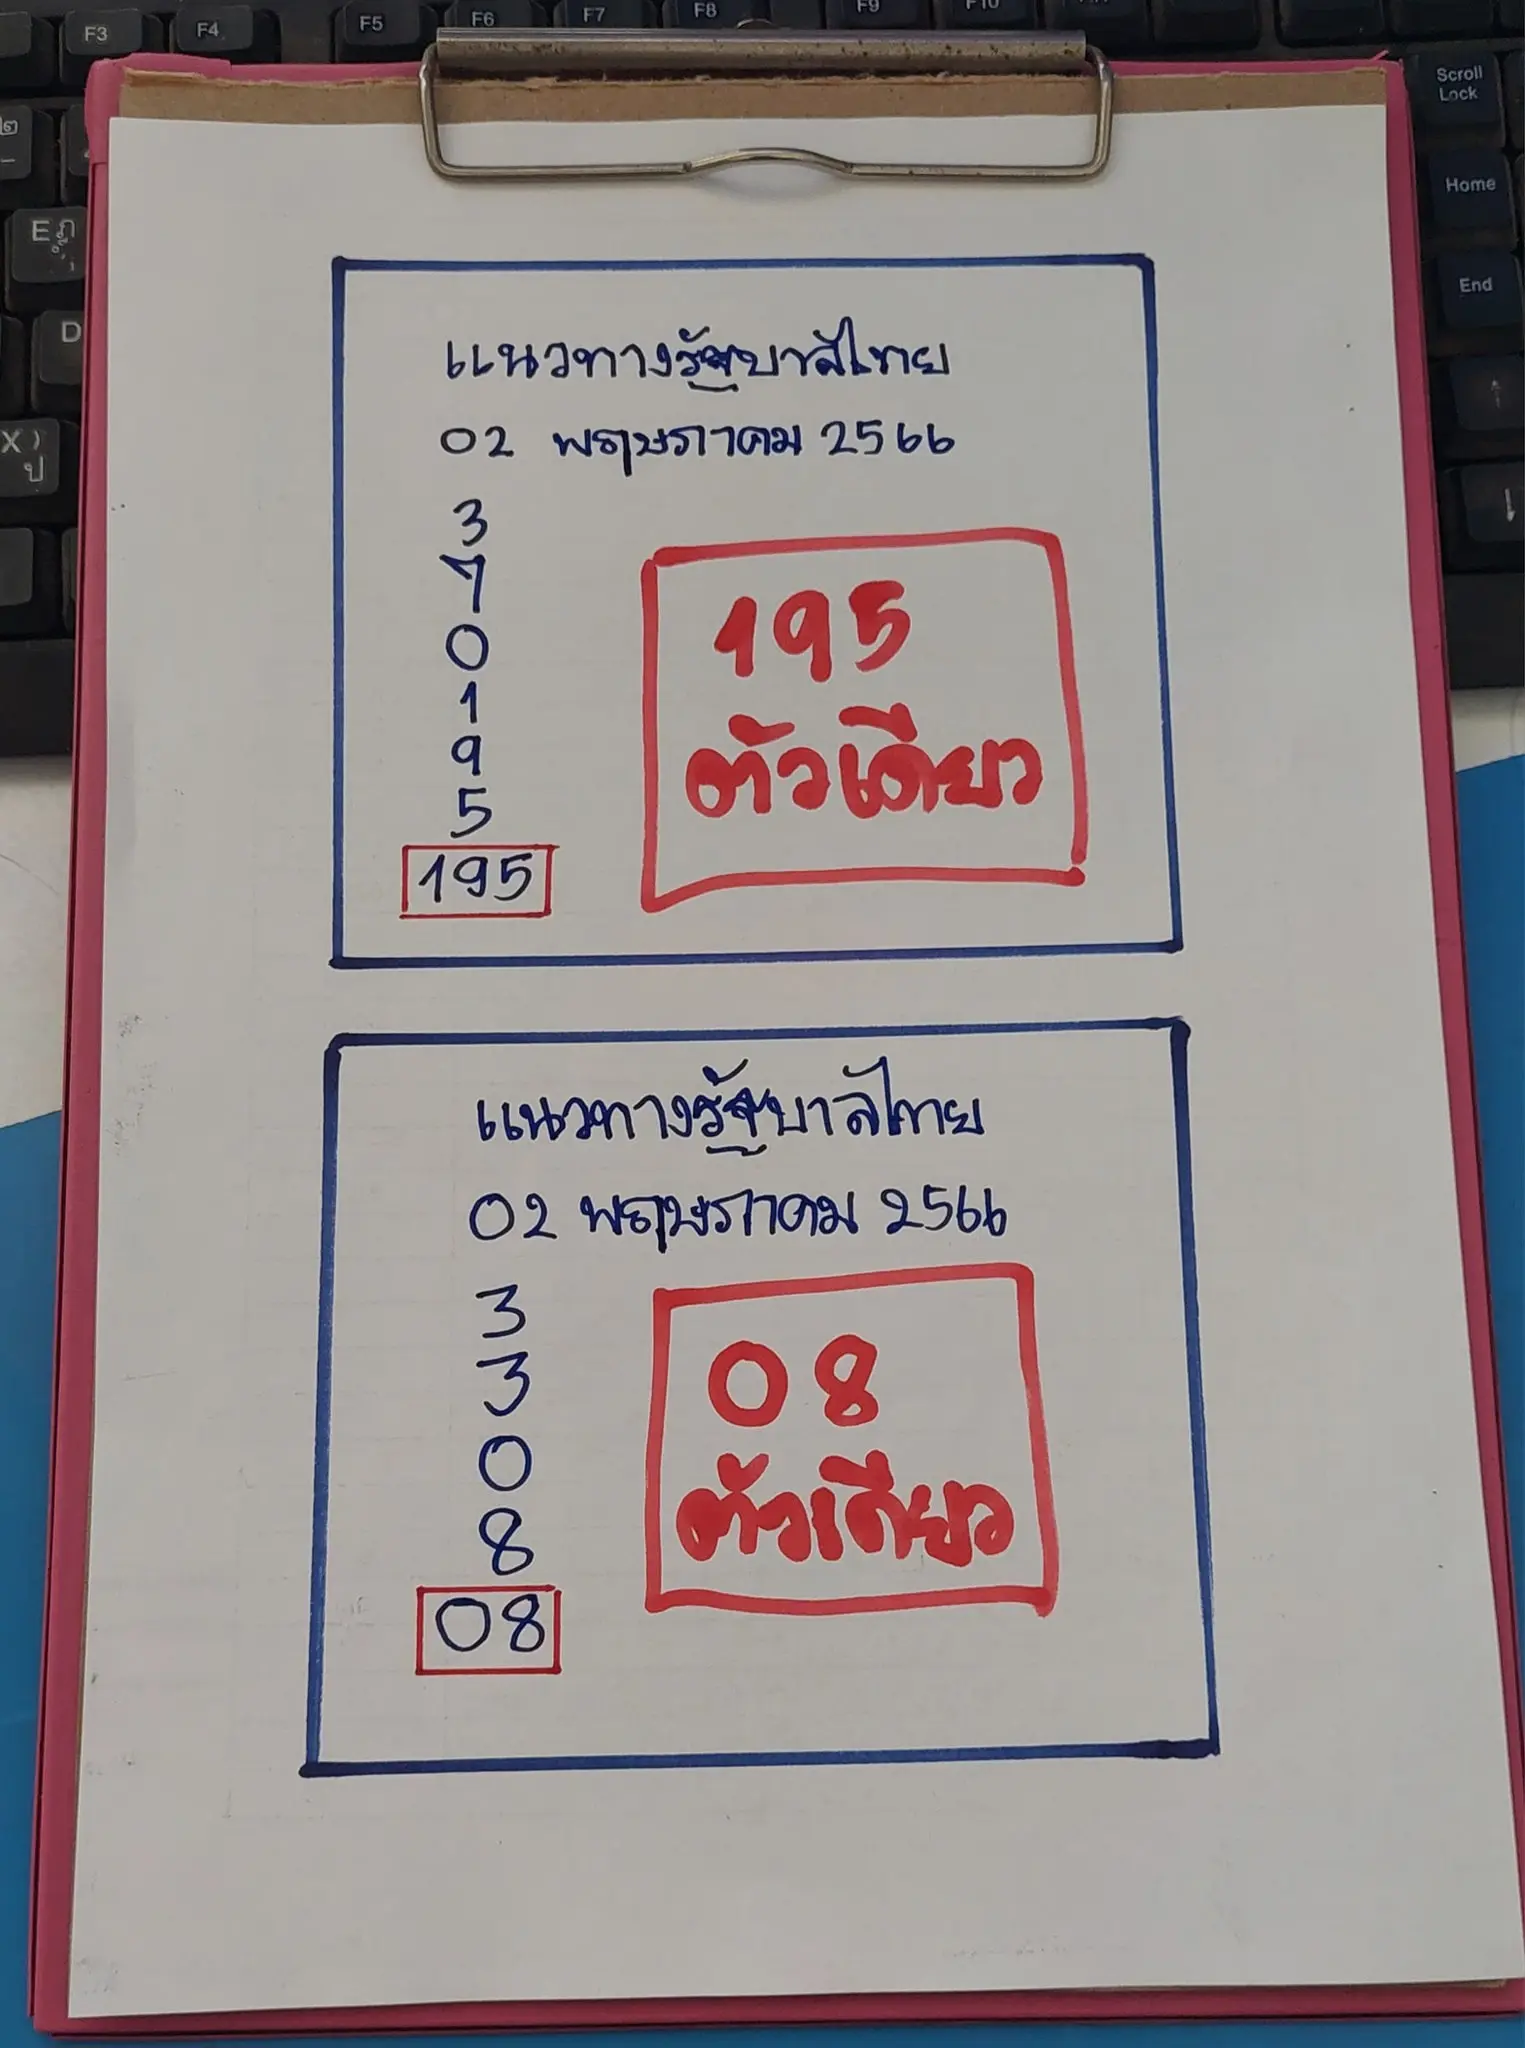 F3 F4 F5 F6 F7 F8 F9 F10
Scroll
Lock
Home
End
E ฎ
D
X )
ป
แนวทางรัฐบาลไทย
02 พฤษภาคม 2566
3
7
0
1
9
5
195
195
ตัวเดียว
แนวทางรัฐบาลไทย
02 พฤษภาคม 2566
3
3
0
8
08
08
ตัวเดียว